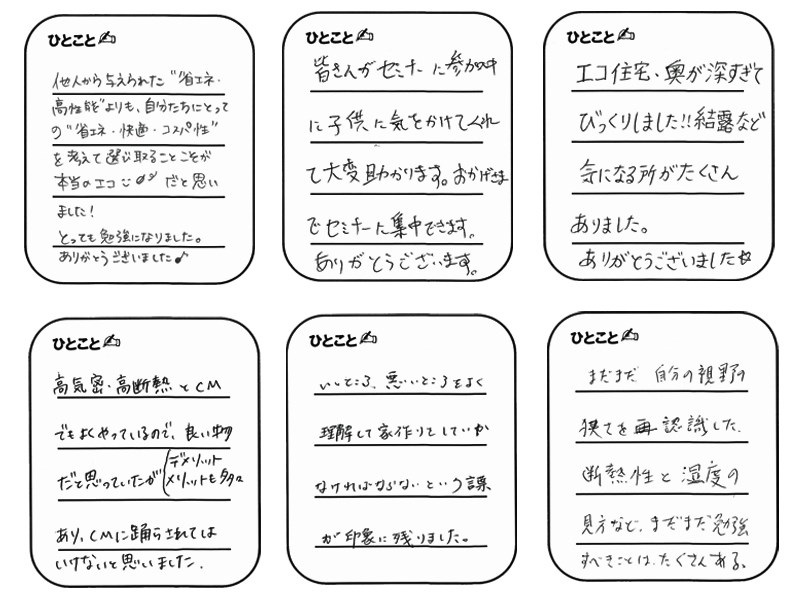 ひとこと✍
他人から与えられた"省エネ・
高性能"よりも、自分たちにとって
の"省エネ・快適・コスパ性"
を考えて選び取ることこそが
本当のエコ だと思い
ました!
とっても勉強になりました。
ありがとうございました♪
ひとこと✍
皆さんがセミナーに参加中
に子供に気をかけてくれ
て大変助かります。おかげさま
でセミナーに集中できます。
ありがとうございます。
ひとこと✍
エコ住宅、奥が深すぎて
びっくりしました!!結露など
気になる所がたくさん
ありました。
ありがとうございました
ひとこと✍
高気密・高断熱とCM
でもよくやっているので、良い物
だと思っていたが(デメリット
メリットも多々
あり、CMに踊らされては
いけないと思いました.
ひとこと✍
いいところ、悪いところをよく
理解して家作りをしていか
なければならないという課
が印象に残りました。
ひとこと✍
まだまだ 自分の視野の
狭さを再認識した.
断熱性と湿度の
見方など、まだまだ勉強
すべきことは、たくさんある。